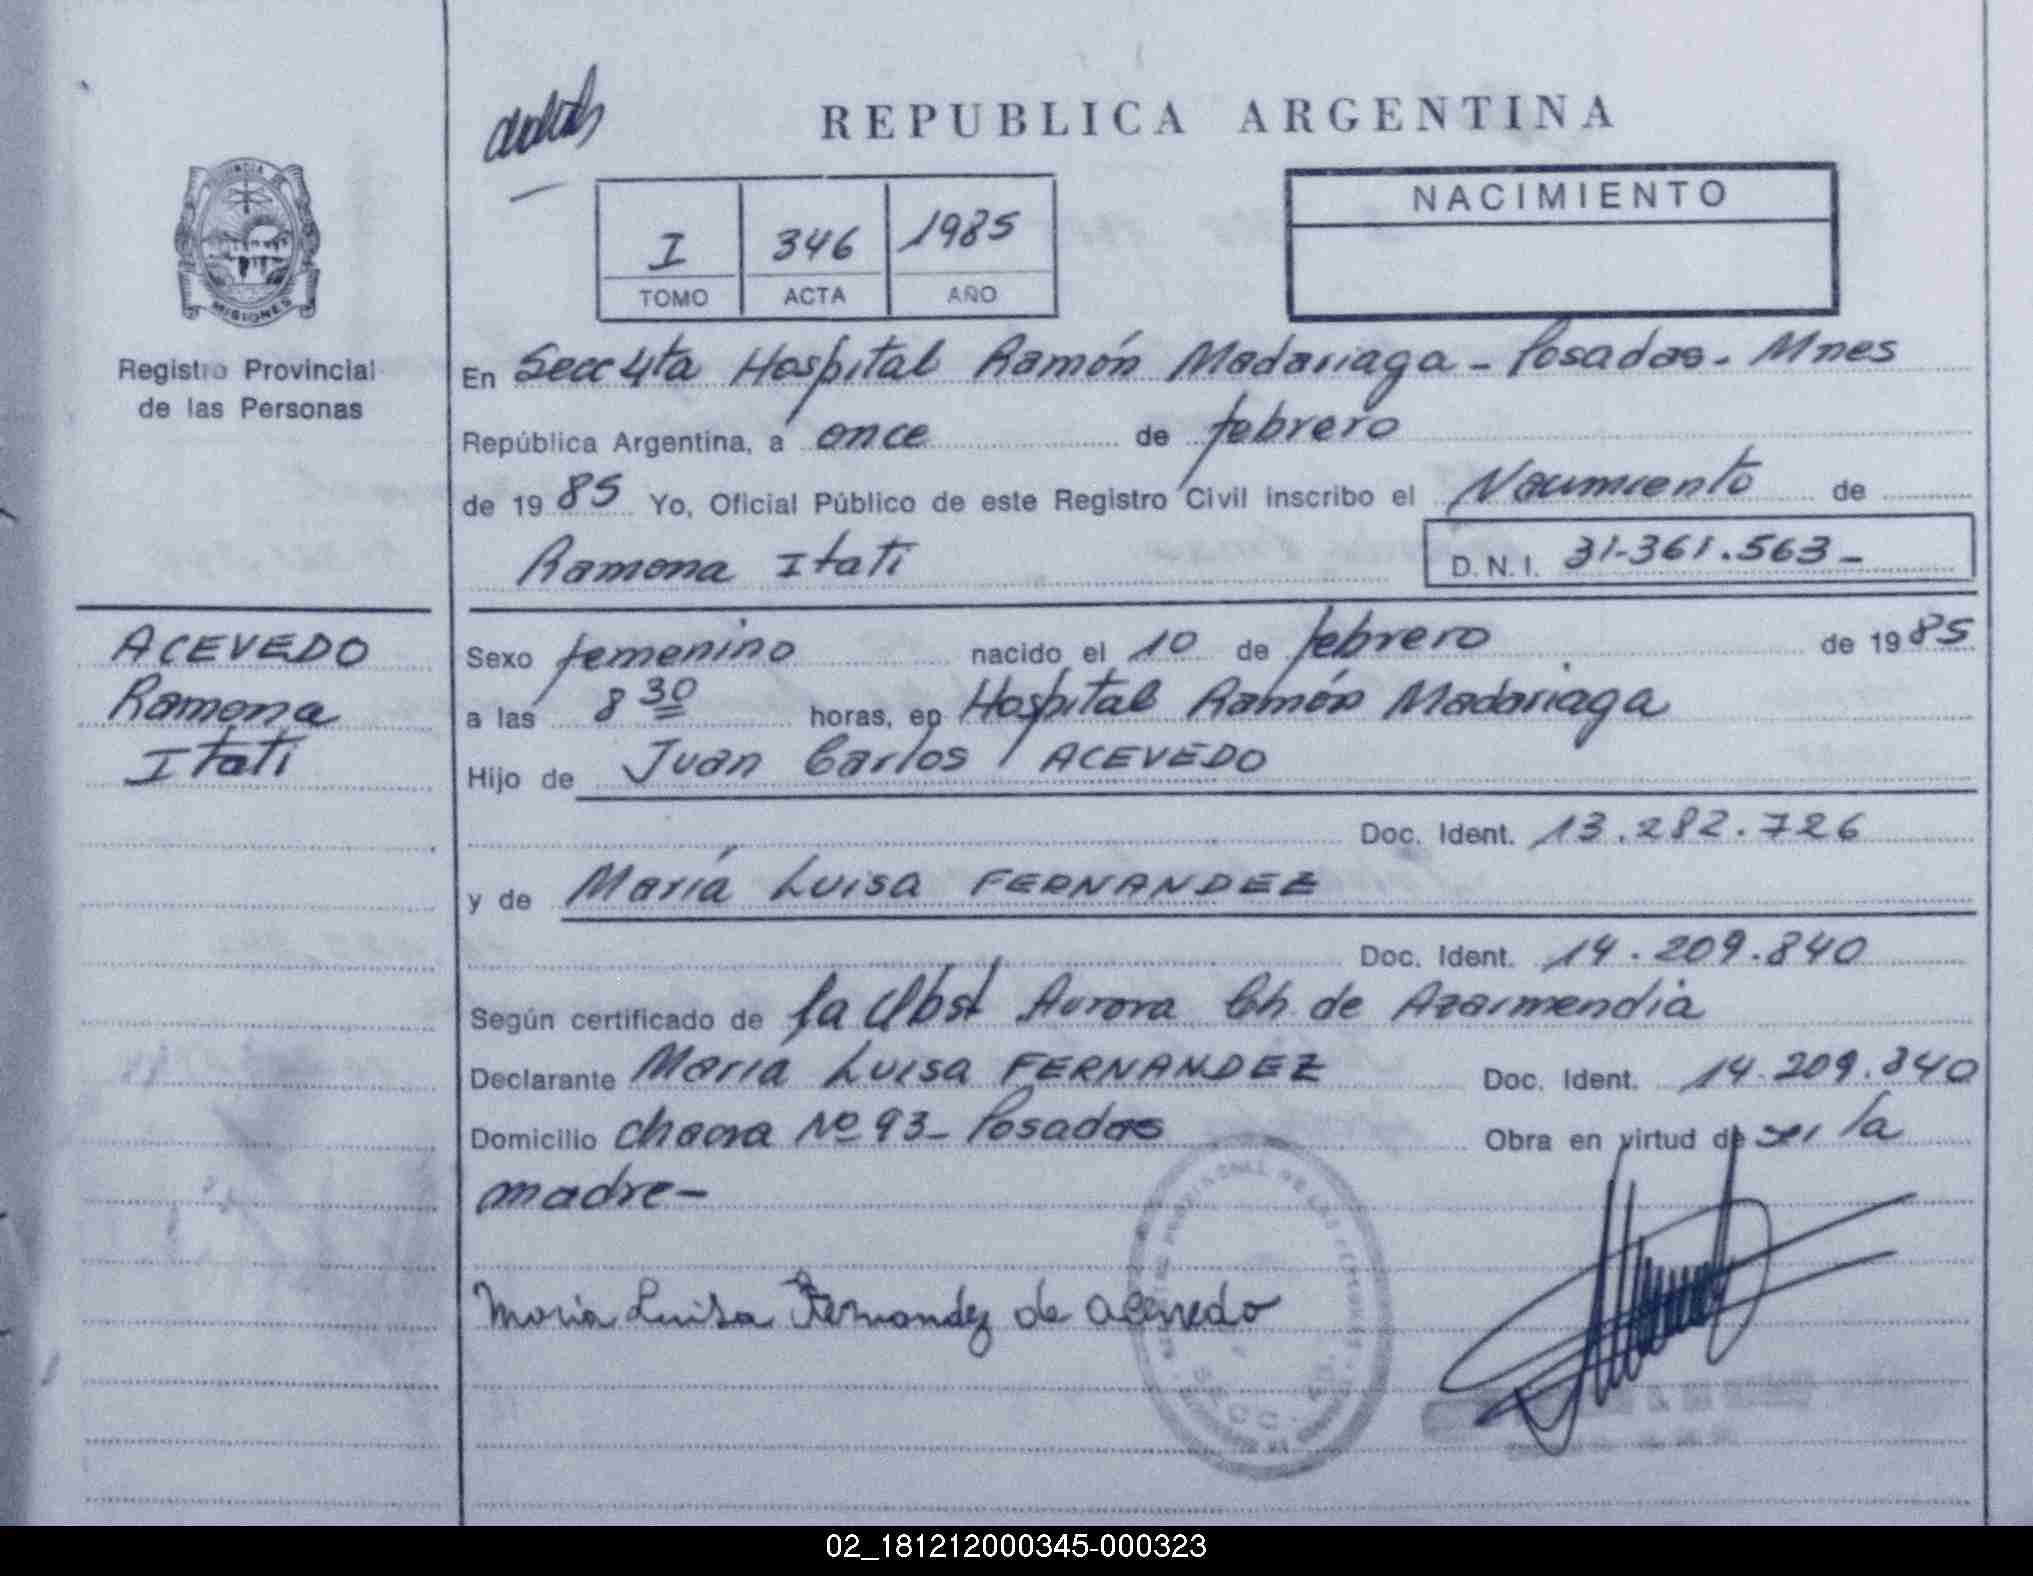 REPUBLICA ARGENTINA
NACIMIENTO
I 346 1985
TOMO ACTA AÑO
MISIONES
Registro Provincial
de las Personas
En Secc 4ta Hospital Ramón Madariaga - Posadas. Mnes
República Argentina, a once de febrero
de 19 85 Yo, Oficial Público de este Registro Civil inscribo el Nacimiento de
Ramona Itatí D.N.I. 31-361.563-
ACEVEDO
Ramona
Itatí
Sexo femenino nacido el 10 de febrero de 19 85
a las 8 30 horas, en Hospital Ramón Madariaga
Hijo de Juan Carlos ACEVEDO
Doc. Ident. 13.282.726
y de María Luisa FERNANDEZ
Doc. Ident. 14.209.840
Según certificado de la Obst Aurora Ch de Azarmendia
Declarante María Luisa FERNANDEZ Doc. Ident. 14.209.840
Domicilio chacra Nº 93- Posadas Obra en virtud de ser la
madre-
Maria Luisa Fernandez de Acevedo
SECC.
02_181212000345-000323